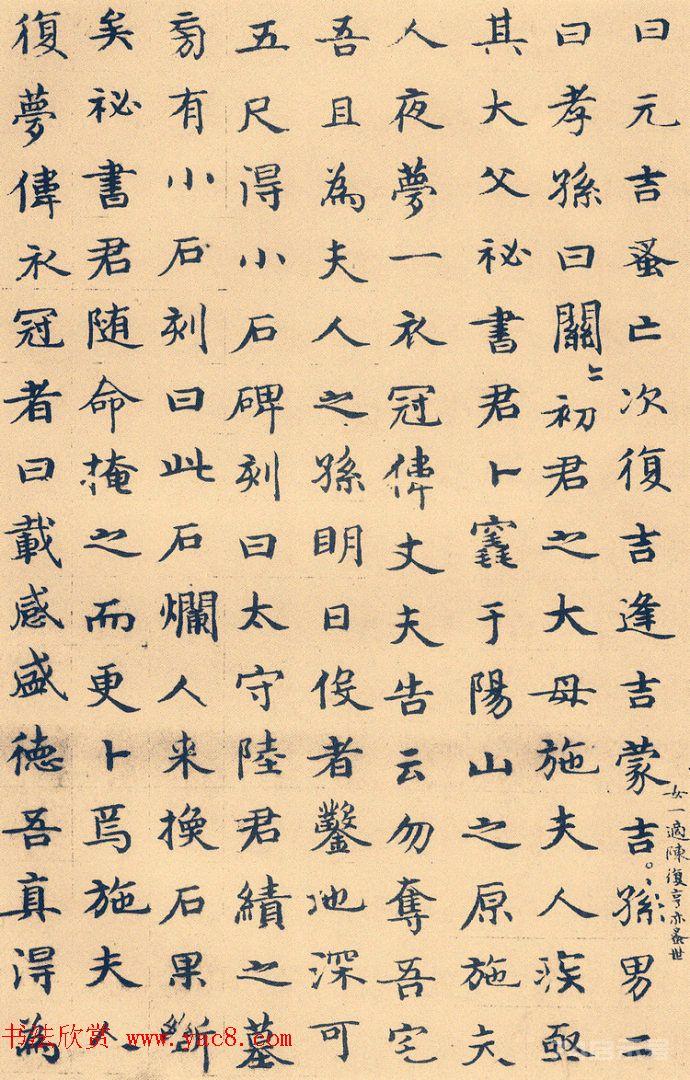 曰元吉蚤亡次復吉逢吉蒙吉。孫男二
女一適陳復亨亦蚤世
曰孝孫曰關〻初君之大母施夫人疾亟
其大父祕書君卜竁于陽山之原施夫
人夜夢一衣冠偉丈夫告云勿奪吾宅
吾且為夫人之孫明日役者鑿地深可
五尺得小石碑刻曰太守陸君績之墓
旁有小石刻曰此石爛人来換石果斷
矣祕書君随命掩之而更卜焉施夫人
復夢偉衣冠者曰載感盛德吾真得為
书法欣赏 www.yac8.com